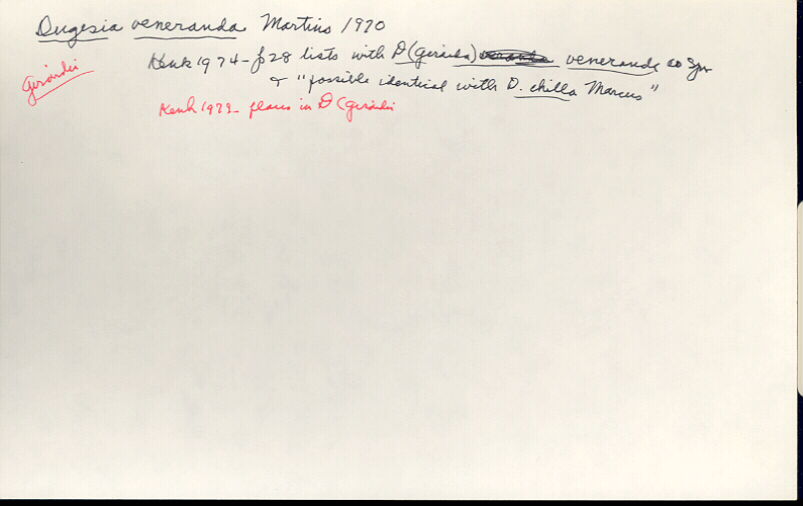 Dugesia veneranda Martins 1970
Kenk 1974-p28 lists with D (Girardia) veneranda as syn
Girardia
+ "possible identical with D. chilla Marcus"
Kenk 1979- places in D (Girardia